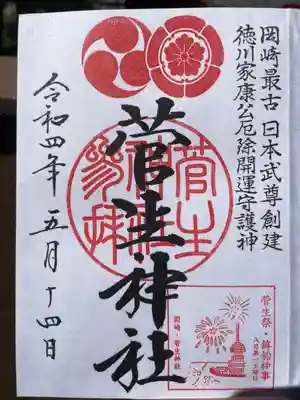 岡崎最古 日本武尊創建
徳川家康公厄除開運守護神
菅生神社
菅生神社参拝
令和四年 五月十四日
菅生祭・鉾船神事
岡崎・菅生神社